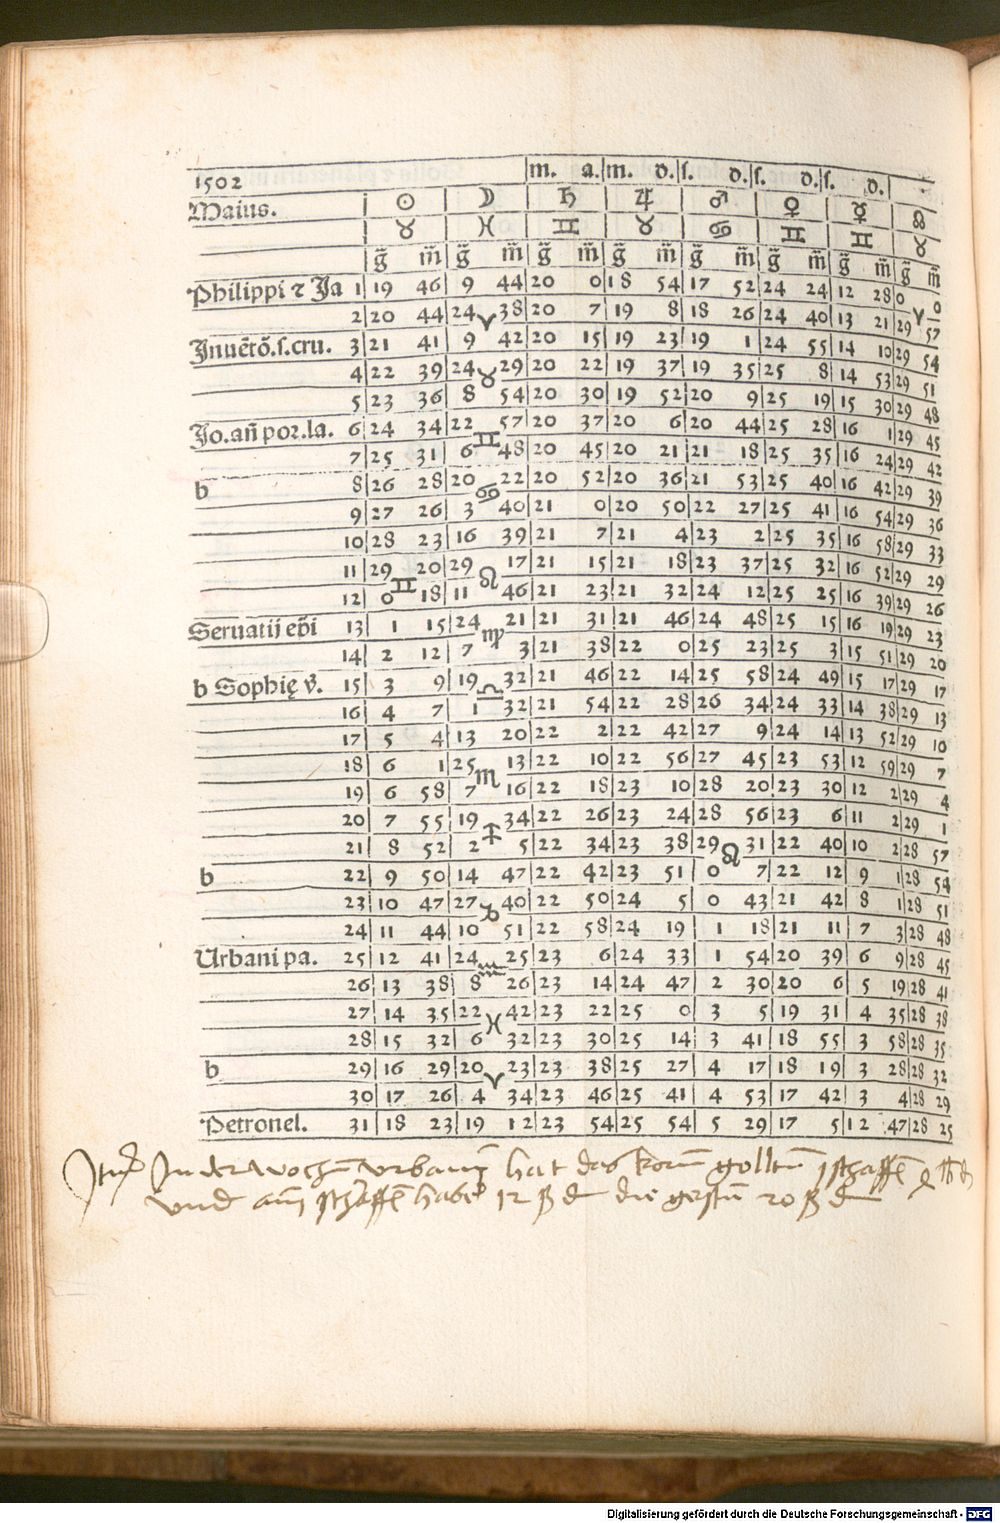 1502 m. a. m. d. s. d. s. d. s. d.
Maius. ☉ ☽ ♄ ♃ ♂ ♀ ☿ ☊
♉ ♓ ♊ ♉ ♋ ♊ ♊ ♉
g̃ m̃ g̃ m̃ g̃ m̃ g̃ m̃ g̃ m̃ g̃ m̃ g̃ m̃ g̃ m̃
Philippi ⁊ Ja 1 19 46 9 44 20 0 18 54 17 52 24 24 12 28 0 0
2 20 44 24 ♈ 38 20 7 19 8 18 26 24 40 13 21 29 ♈ 57
Inuẽtõ.s.cru. 3 21 41 9 42 20 15 19 23 19 1 24 55 14 10 29 54
4 22 39 24 ♉ 29 20 22 19 37 19 35 25 8 14 53 29 51
5 23 36 8 54 20 30 19 52 20 9 25 19 15 30 29 48
Jo.añ por.la. 6 24 34 22 57 20 37 20 6 20 44 25 28 16 1 29 45
7 25 31 6 ♊ 48 20 45 20 21 21 18 25 35 16 24 29 42
b 8 26 28 20 22 20 52 20 36 21 53 25 40 16 42 29 39
9 27 26 3 ♋ 40 21 0 20 50 22 27 25 41 16 54 29 36
10 28 23 16 39 21 7 21 4 23 2 25 35 16 58 29 33
11 29 20 29 17 21 15 21 18 23 37 25 32 16 52 29 29
12 0 ♊ 18 11 ♌ 46 21 23 21 32 24 12 25 25 16 39 29 26
Seruatij ep̃i 13 1 15 24 21 21 31 21 46 24 48 25 15 16 19 29 23
14 2 12 7 ♍ 3 21 38 22 0 25 23 25 3 15 51 29 20
b Sophię v̊. 15 3 9 19 32 21 46 22 14 25 58 24 49 15 17 29 17
16 4 7 1 ♎ 32 21 54 22 28 26 34 24 33 14 38 29 13
17 5 4 13 20 22 2 22 42 27 9 24 14 13 52 29 10
18 6 1 25 13 22 10 22 56 27 45 23 53 12 59 29 7
19 6 58 7 ♏ 16 22 18 23 10 28 20 23 30 12 2 29 4
20 7 55 19 34 22 26 23 24 28 56 23 6 11 2 29 1
21 8 52 2 ♐ 5 22 34 23 38 29 31 22 40 10 2 28 57
b 22 9 50 14 47 22 42 23 51 0 ♌ 7 22 12 9 1 28 54
23 10 47 27 40 22 50 24 5 0 43 21 42 8 1 28 51
24 11 44 10 ♑ 51 22 58 24 19 1 18 21 11 7 3 28 48
Urbani pa. 25 12 41 24 25 23 6 24 33 1 54 20 39 6 9 28 45
26 13 38 8 ♒ 26 23 14 24 47 2 30 20 6 5 19 28 41
27 14 35 22 42 23 22 25 0 3 5 19 31 4 35 28 38
28 15 32 6 ♓ 32 23 30 25 14 3 41 18 55 3 58 28 35
b 29 16 29 20 23 23 38 25 27 4 17 18 19 3 28 28 32
30 17 26 4 ♈ 34 23 46 25 41 4 53 17 42 3 4 28 29
Petronel. 31 18 23 19 12 23 54 25 54 5 29 17 5 12 47 28 25
In der wochñ vrbani hat das korñ golltñ 1 schaffñ
vnd ain schaffñ haber 12 ß d die gerstñ 20 ß d
Digitalisierung gefördert durch die Deutsche Forschungsgemeinschaft - DFG